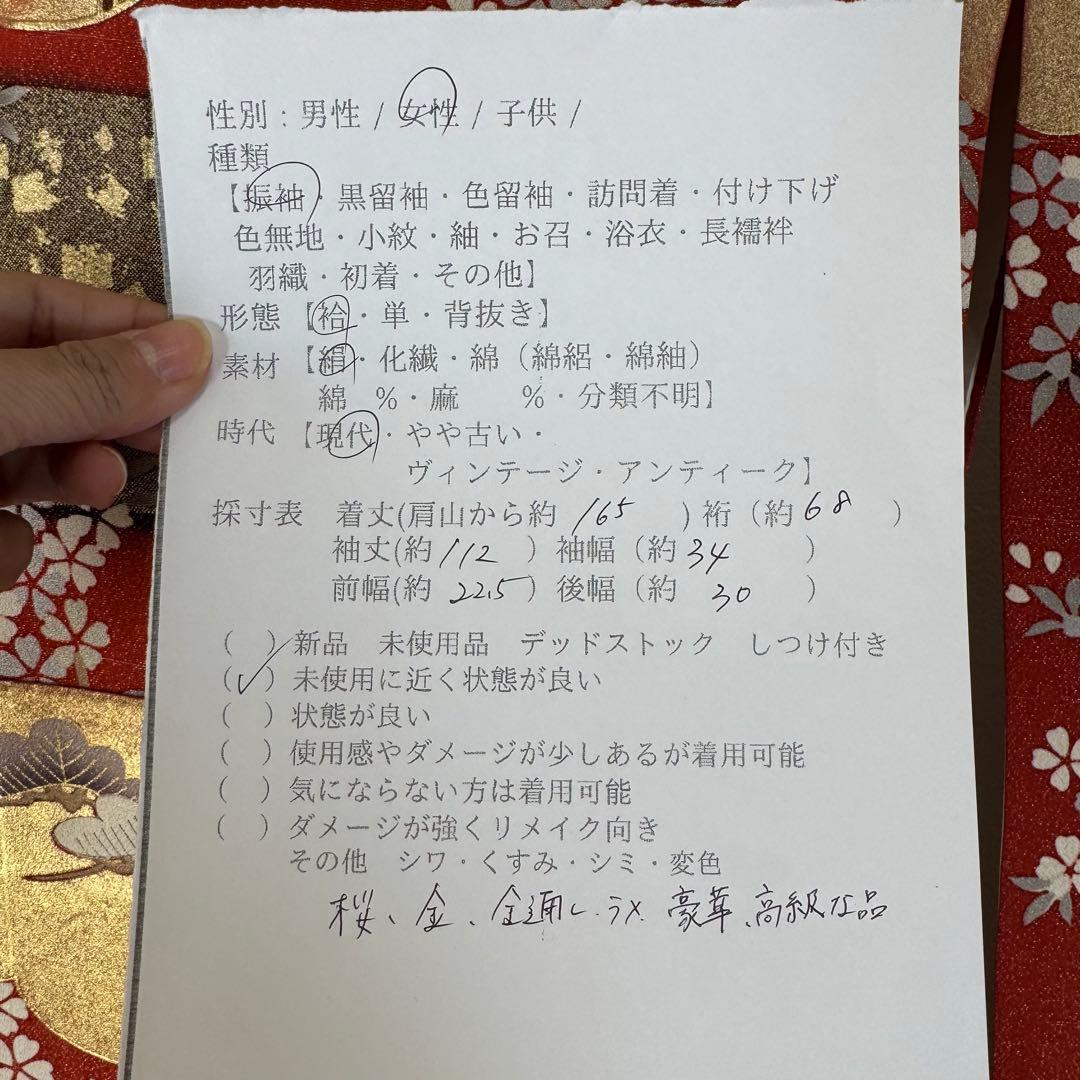 性別：男性 / 女性 / 子供 /
種類
【振袖・黒留袖・色留袖・訪問着・付け下げ
色無地・小紋・紬・お召・浴衣・長襦袢
羽織・初着・その他】
形態【袷・単・背抜き】
素材【絹・化繊・綿（綿絽・綿紬）
綿 %・麻 %・分類不明】
時代【現代・やや古い・
ヴィンテージ・アンティーク】
採寸表 着丈(肩山から約 165 ) 裄（約 68 ）
袖丈(約 112 ）袖幅（約 34 ）
前幅(約 22.5 ）後幅（約 30 ）
（ ）新品 未使用品 デッドストック しつけ付き
（✓）未使用に近く状態が良い
（ ）状態が良い
（ ）使用感やダメージが少しあるが着用可能
（ ）気にならない方は着用可能
（ ）ダメージが強くリメイク向き
その他 シワ・くすみ・シミ・変色
桜、金、金通し、ラメ、豪華、高級な品